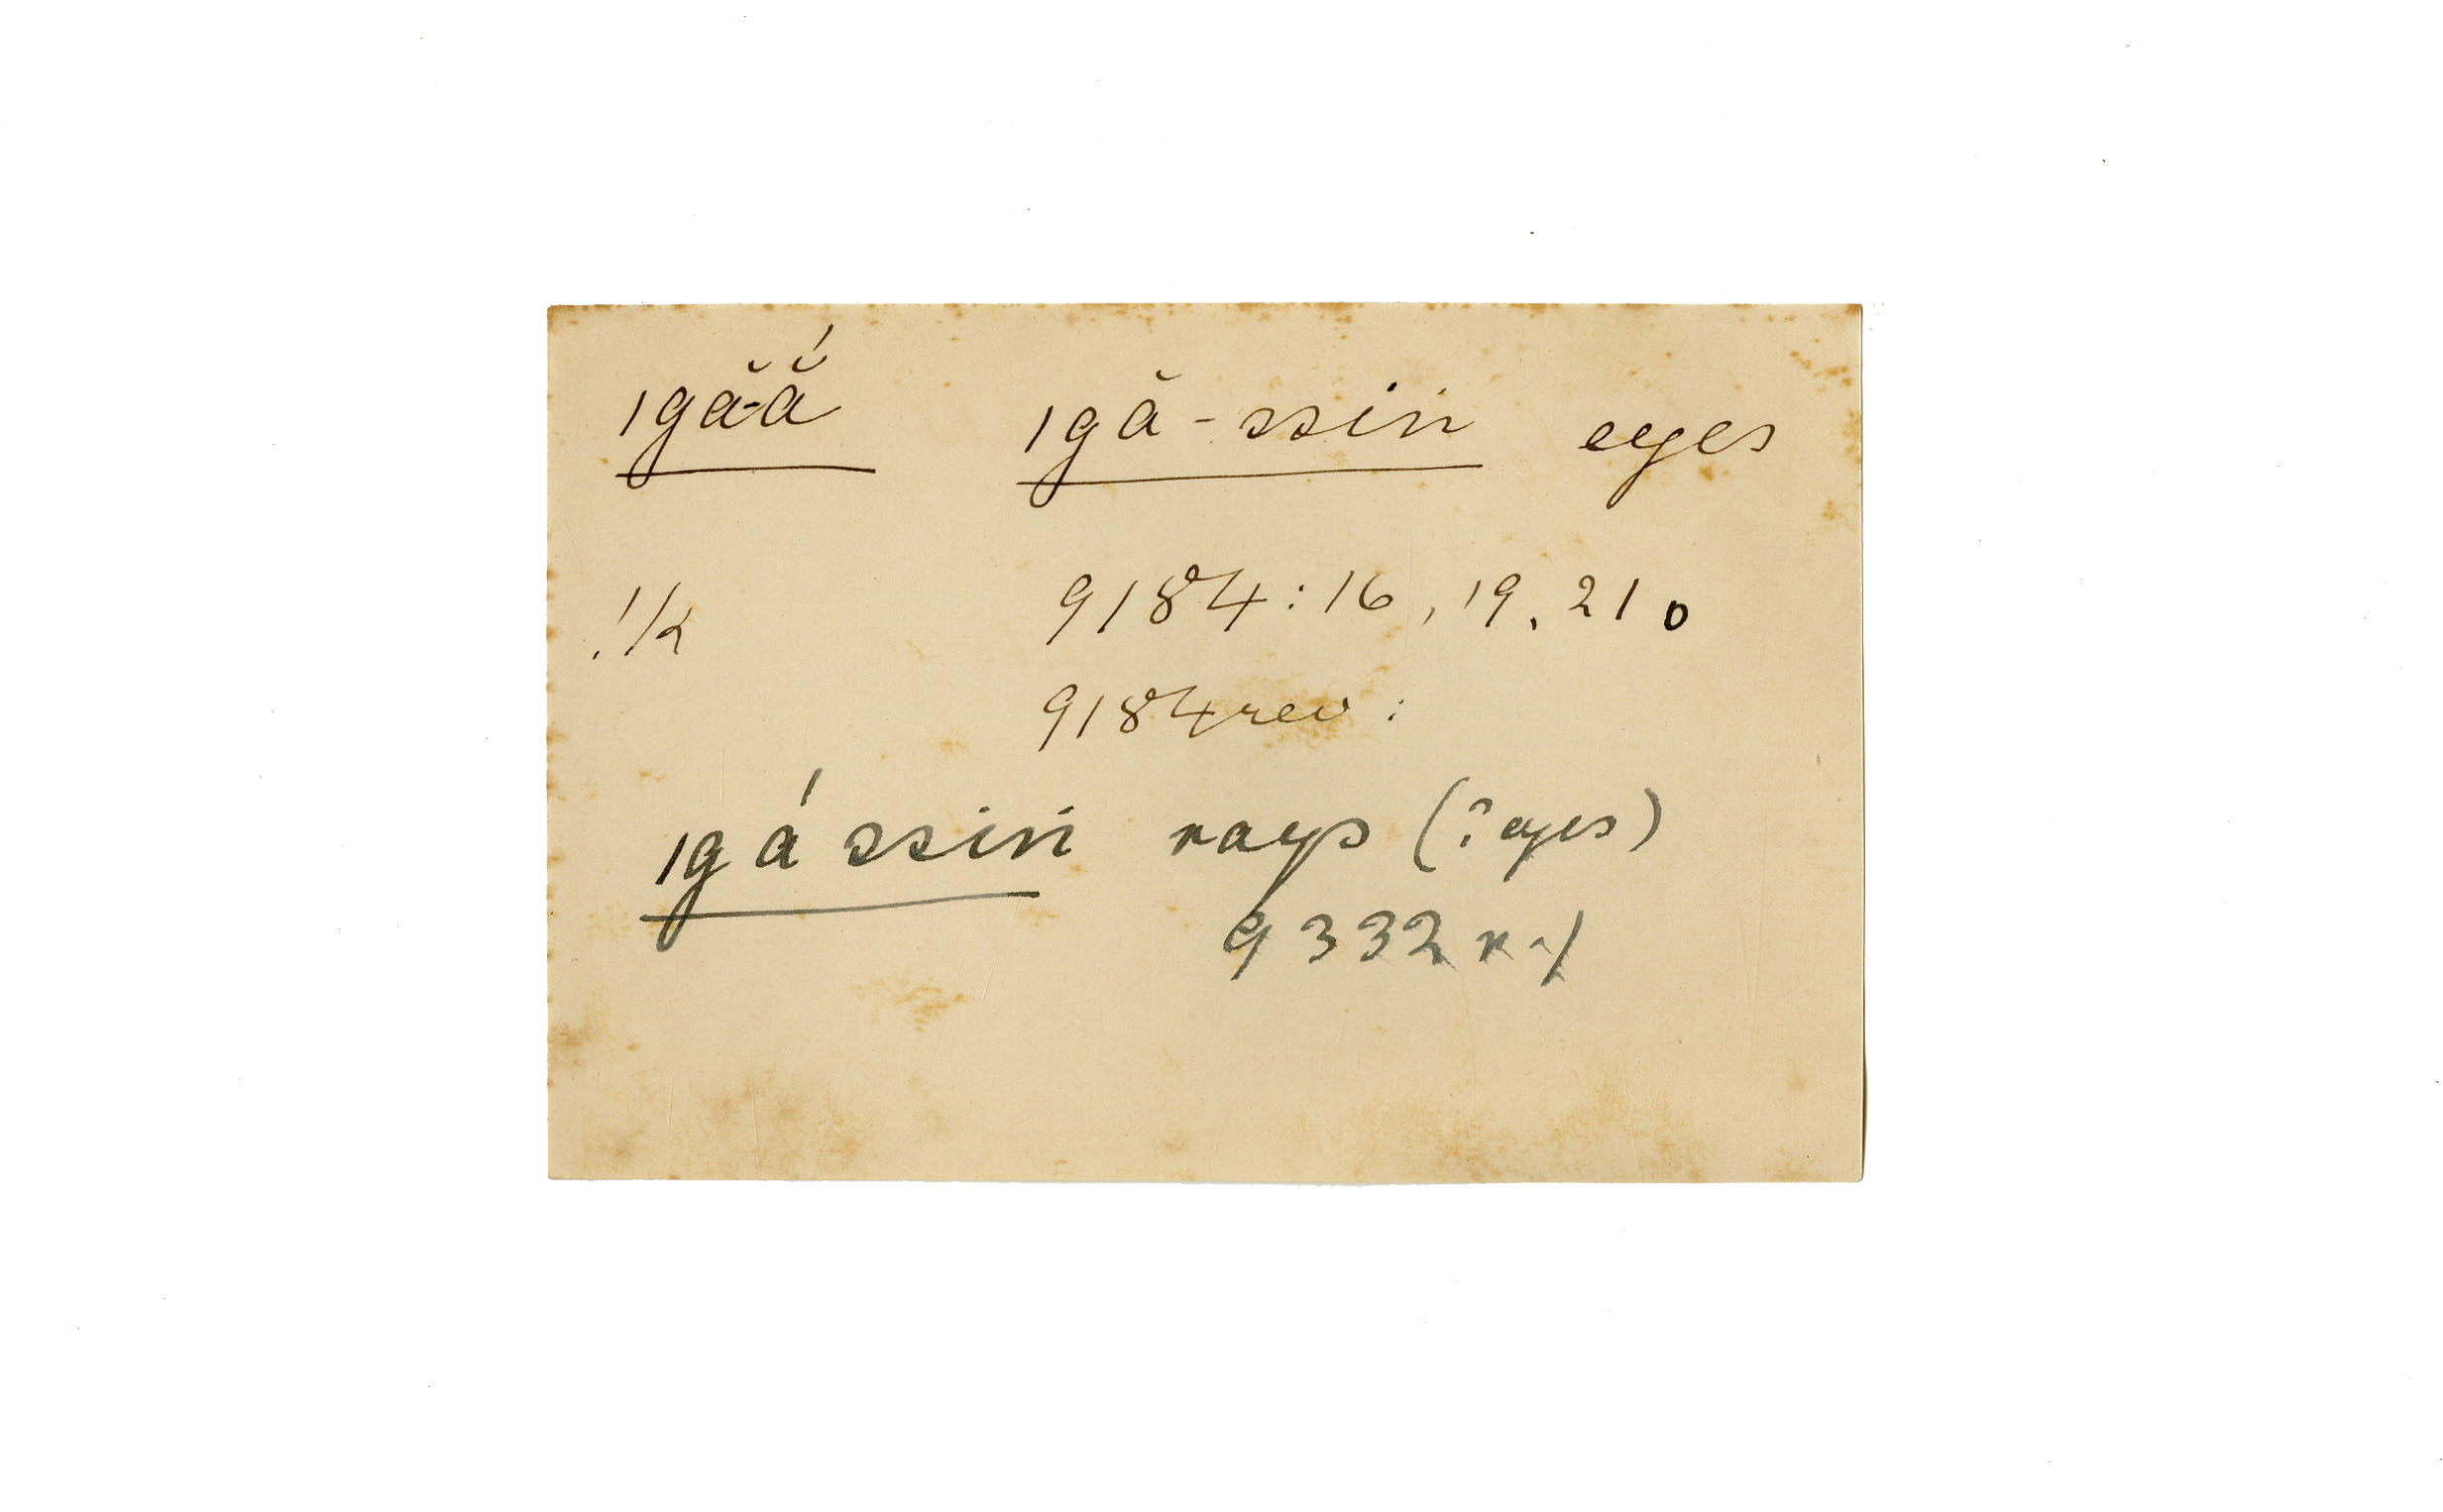 ıgă-ắ ıgă-ssin eyes
!k 9184:16, 19, 21.
9184 rev:
ıgá ssin rays (? eyes)
9332